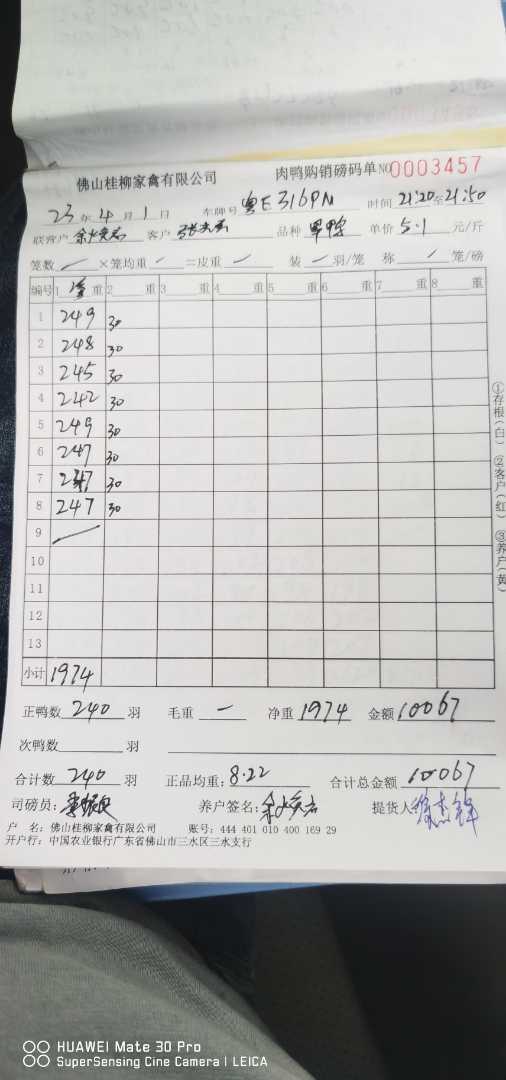 佛山桂柳家禽有限公司 肉鸭购销磅码单 NO0003457
23年4月1日 车牌号 粤E316PN 时间 21:20至21:50
联营户 客户 品种 单价 5.1 元/斤
笼数 / ×笼均重 / =皮重 / 装 / 羽/笼 称 / 笼/磅
编号 1 重 2 重 3 重 4 重 5 重 6 重 7 重 8 重
1 249 30
2 248 30
3 245 30
4 242 30
5 249 30
6 247 30
7 247 30
8 247 30
9
10
11
12
13
小计 1974
正鸭数 240 羽 毛重 — 净重 1974 金额 10067
次鸭数 羽
合计数 240 羽 正品均重: 8.22 合计总金额 10067
司磅员: 养户签名: 提货人:
户 名: 佛山桂柳家禽有限公司 账号: 444 401 010 400 169 29
开户行: 中国农业银行广东省佛山市三水区三水支行
①存根(白) ②客户(红) ③养户(黄)
HUAWEI Mate 30 Pro
SuperSensing Cine Camera | LEICA